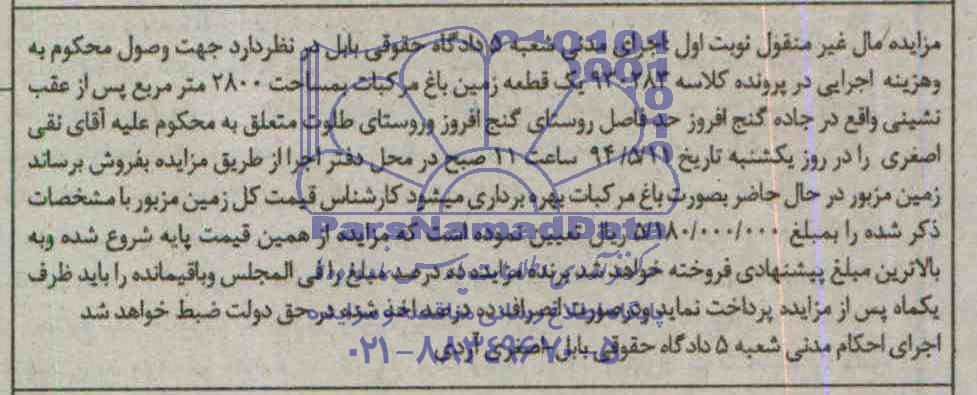 مزایده مال غیر منقول نوبت اول اجرای مدنی شعبه ۵ دادگاه حقوقی بابل در نظردارد جهت وصول محکوم به
وهزینه اجرایی در پرونده کلاسه ۹۲۰۲۸۳ یک قطعه زمین باغ مرکبات بمساحت ۲۸۰۰ متر مربع پس از عقب
نشینی واقع در جاده گنج افروز حد فاصل روستای گنج افروز وروستای طلوت متعلق به محکوم علیه آقای نقی
اصغری را در روز یکشنبه تاریخ ۹۴/۵/۱۱ ساعت ۱۱ صبح در محل دفتر اجرا از طریق مزایده بفروش برساند
زمین مزبور در حال حاضر بصورت باغ مرکبات بهره برداری میشود کارشناس قیمت کل زمین مزبور با مشخصات
ذکر شده را بمبلغ ۵/۱۸۰/۰۰۰/۰۰۰ ریال تعیین نموده است که مزایده از همین قیمت پایه شروع شده وبه
بالاترین مبلغ پیشنهادی فروخته خواهد شد برنده مزایده ده درصد مبلغ را فی المجلس وباقیمانده را باید ظرف
یکماه پس از مزایده پرداخت نماید ودرصورت انصراف ده درصد اخذ شده در حق دولت ضبط خواهد شد
اجرای احکام مدنی شعبه ۵ دادگاه حقوقی بابل-اصغری
ParsNamadData
۰۲۱-۸۸۳۴۹۶۷۰-۵